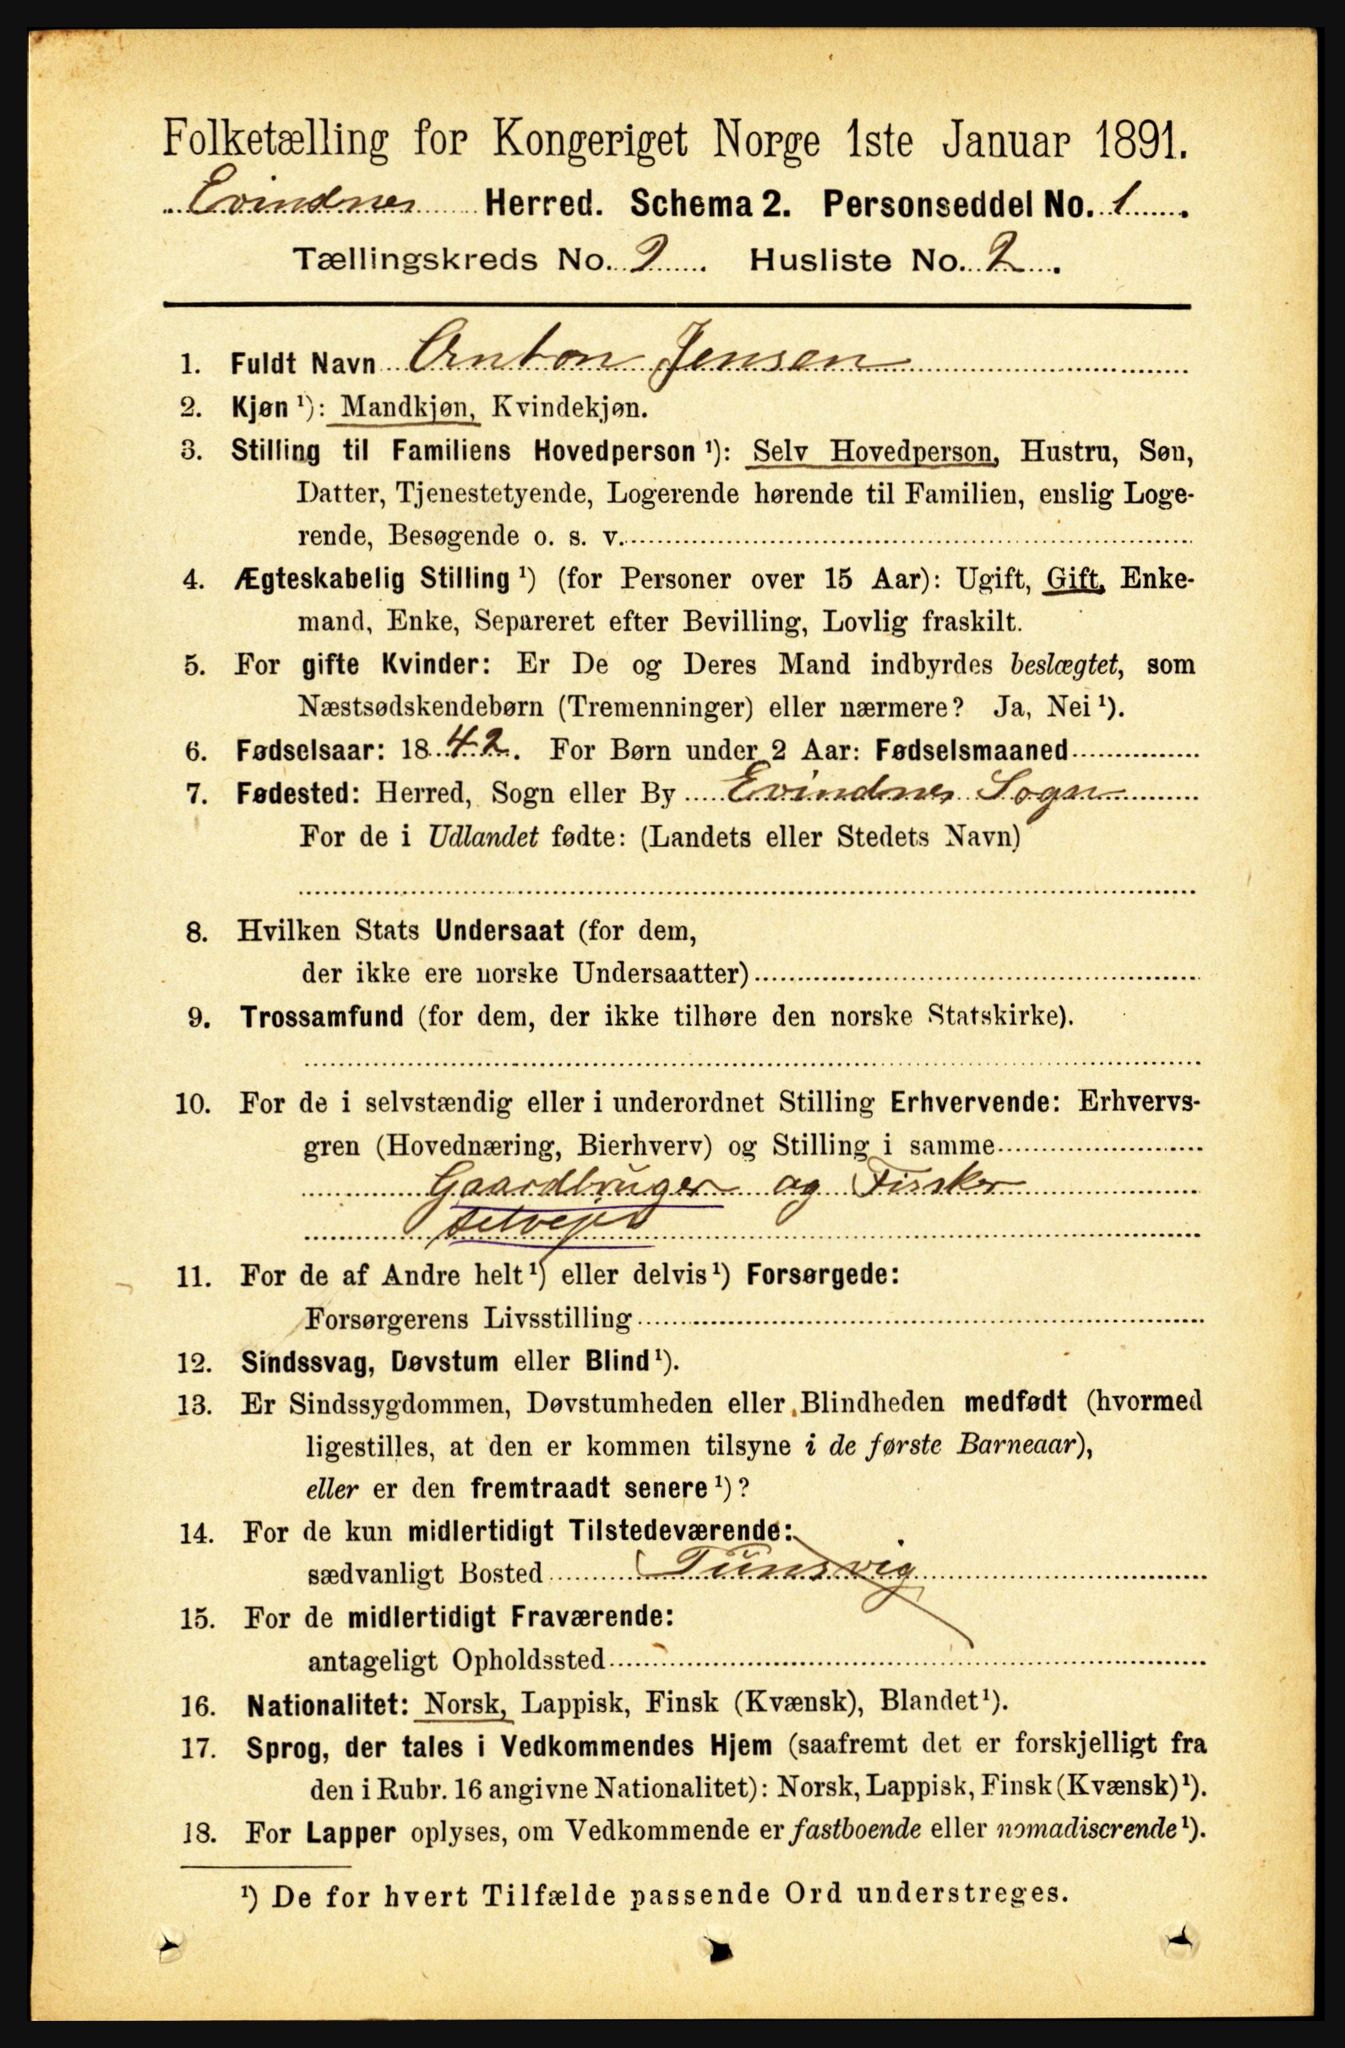 Folketælling for Kongeriget Norge 1ste Januar 1891.
Evindnes Herred. Schema 2. Personseddel No. 1.
Tællingskreds No. 2. Husliste No. 2.
1. Fuldt Navn Anton Jensen
2. Kjøn ¹): Mandkjøn, Kvindekjøn.
3. Stilling til Familiens Hovedperson ¹): Selv Hovedperson, Hustru, Søn,
Datter, Tjenestetyende, Logerende hørende til Familien, enslig Loge-
rende, Besøgende o. s. v.
4. Ægteskabelig Stilling ¹) (for Personer over 15 Aar): Ugift, Gift, Enke-
mand, Enke, Separeret efter Bevilling, Lovlig fraskilt.
5. For gifte Kvinder: Er De og Deres Mand indbyrdes beslægtet, som
Næstsødskendebørn (Tremenninger) eller nærmere? Ja, Nei ¹).
6. Fødselsaar: 1842. For Børn under 2 Aar: Fødselsmaaned
7. Fødested: Herred, Sogn eller By Evindnes Sogn
For de i Udlandet fødte: (Landets eller Stedets Navn)
8. Hvilken Stats Undersaat (for dem,
der ikke ere norske Undersaatter)
9. Trossamfund (for dem, der ikke tilhøre den norske Statskirke).
10. For de i selvstændig eller i underordnet Stilling Erhvervende: Erhvervs-
gren (Hovednæring, Bierhverv) og Stilling i samme
Gaardbruger og Fisker
selvejer
11. For de af Andre helt ¹) eller delvis ¹) Forsørgede:
Forsørgerens Livsstilling
12. Sindssvag, Døvstum eller Blind ¹).
13. Er Sindssygdommen, Døvstumheden eller Blindheden medfødt (hvormed
ligestilles, at den er kommen tilsyne i de første Barneaar),
eller er den fremtraadt senere ¹)?
14. For de kun midlertidigt Tilstedeværende:
sædvanligt Bosted Tunsvig
15. For de midlertidigt Fraværende:
antageligt Opholdssted
16. Nationalitet: Norsk, Lappisk, Finsk (Kvænsk), Blandet ¹).
17. Sprog, der tales i Vedkommendes Hjem (saafremt det er forskjelligt fra
den i Rubr. 16 angivne Nationalitet): Norsk, Lappisk, Finsk (Kvænsk) ¹).
18. For Lapper oplyses, om Vedkommende er fastboende eller nomadiserende ¹).
¹) De for hvert Tilfælde passende Ord understreges.